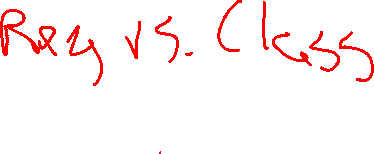 Reg vs. Class